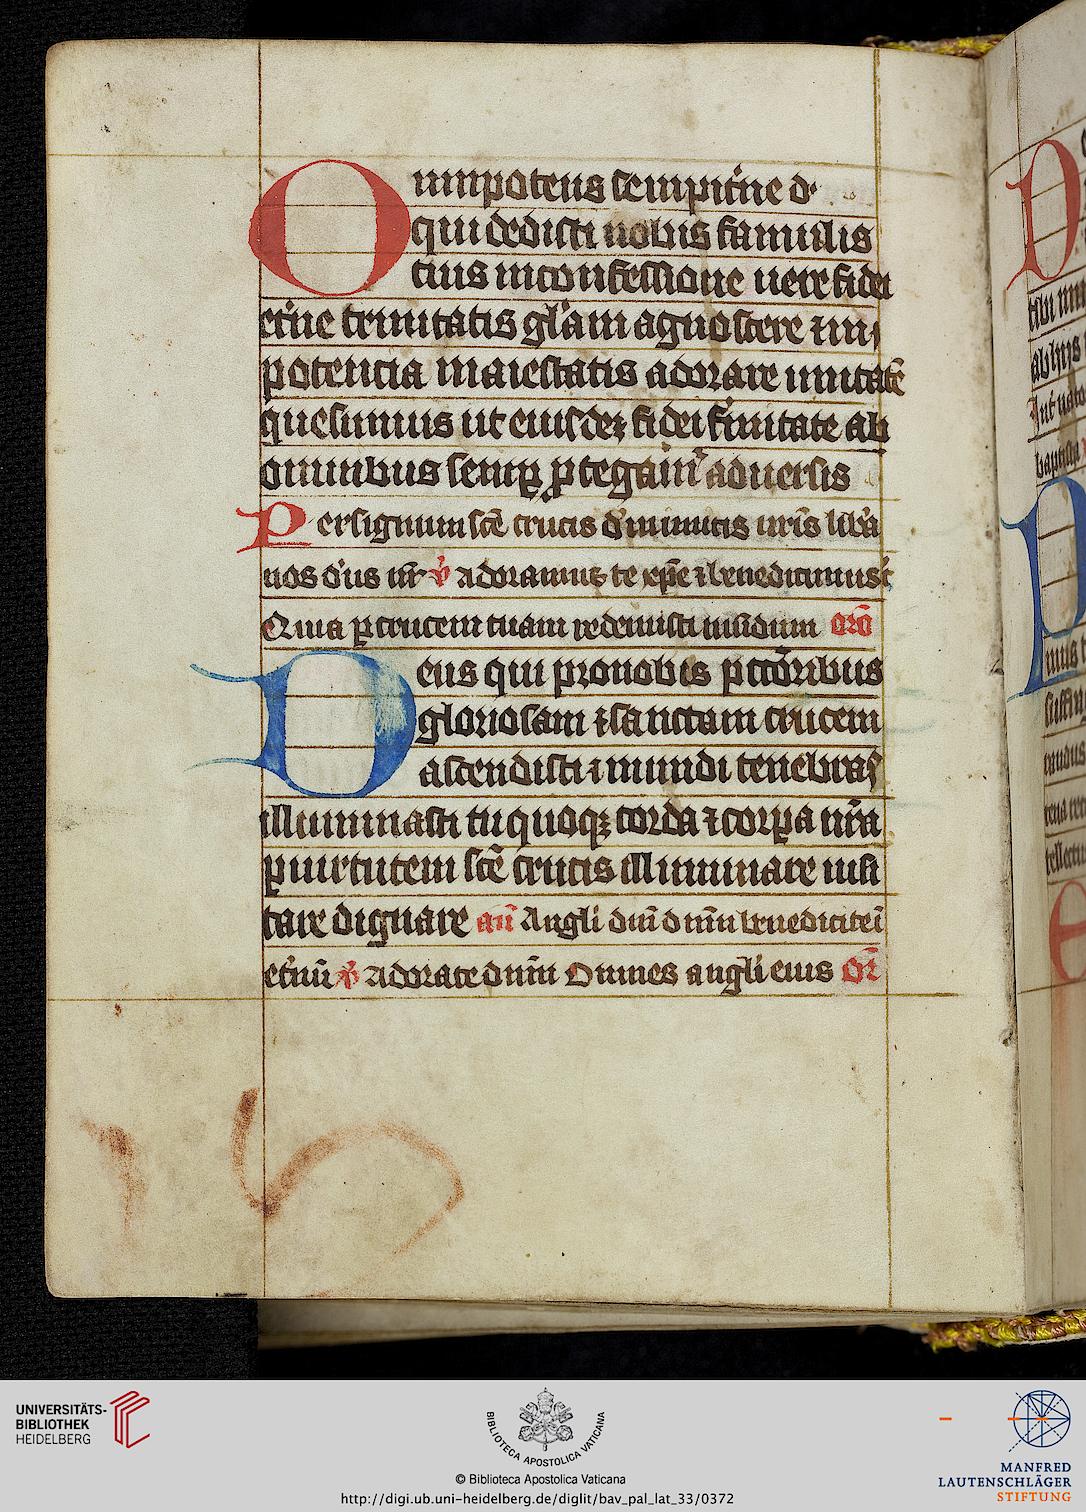 Omnipotens sempit'ne d'
qui dedisti nobis famulis
tuis in confessione vere fidei
et'ne trinitatis gl'am agnoscere ⁊ in
potencia maiestatis adorare unitatē
quesumus ut eiusdeꝫ fidei f'mitate ab
omnibus semꝑ ꝓtegam̄ aduersis
Per signum scē crucis d' inimicis nr̄is lib'a
nos d'us nr̄ v̄ adoramus te xp̄e ⁊ benedicimus t'
Quia ꝑ crucem tuam redemisti mūdum orō
Deus qui pro nobis pctōribus
gloriosam ⁊ sanctam crucem
ascendisti ⁊ mundi tenebras
illuminasti tu quoqꝫ corda ⁊ corꝑa nr̄a
ꝑ uirtutem scē crucis illuminare uisi
tare dignare an̄ Angli dn̄i dnm̄ benedicite ī
et'nū v̄ Adorate dnm̄ Omnes angl'i eius Or̄
UNIVERSITÄTS-
BIBLIOTHEK
HEIDELBERG
BIBLIOTECA APOSTOLICA VATICANA
© Biblioteca Apostolica Vaticana
http://digi.ub.uni-heidelberg.de/diglit/bav_pal_lat_33/0372
MANFRED
LAUTENSCHLÄGER
STIFTUNG